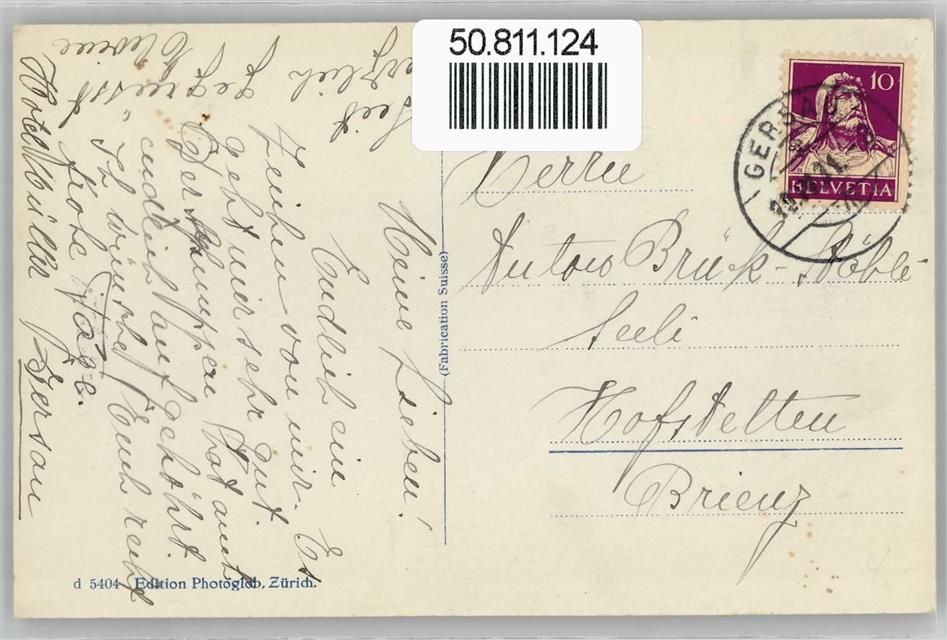 50.811.124
10
HELVETIA
GERSAU
Herrn
Anton Brück-Köhli
Seeli
Hofstetten
Brienz
(Fabrication Suisse)
d 5404 Edition Photoglob, Zürich.
Meine Lieben!
Endlich ein
Zeichen von mir. Es
geht mir sehr gut.
Der Schnuppen hat auch
endlich aufgehöhrt.
Ich wünsche Euch recht
frohe Tage.
Seid
herzlich gegrüsst
Hotel Müller Gersau